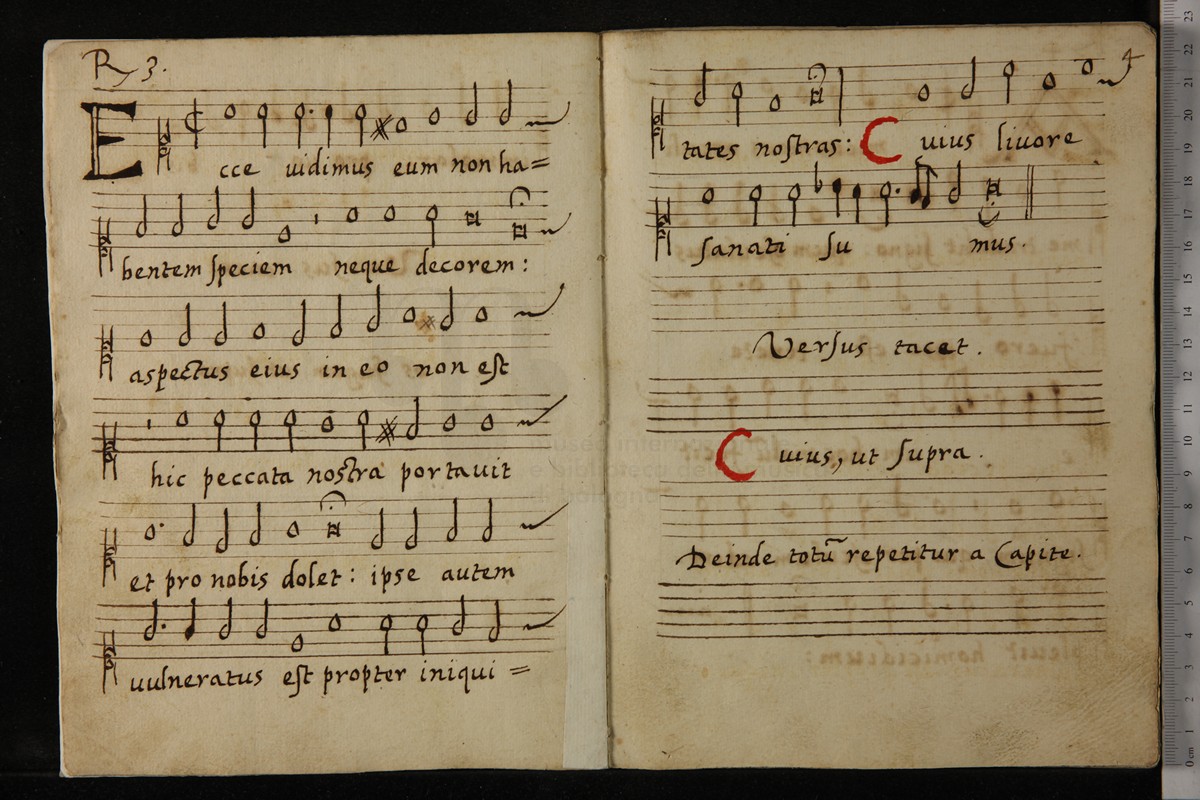 R 3.
Ecce uidimus eum non ha=
bentem ſpeciem neque decorem:
aspectus eius in eo non eſt
hic peccata noſtra portauit
et pro nobis dolet: ipse autem
uulneratus eſt propter iniqui =
4
tates noſtras: Cuius liuore
ſanati ſu mus.
Verſus tacet.
Cuius, ut ſupra.
Deinde totũ repetitur a Capite.